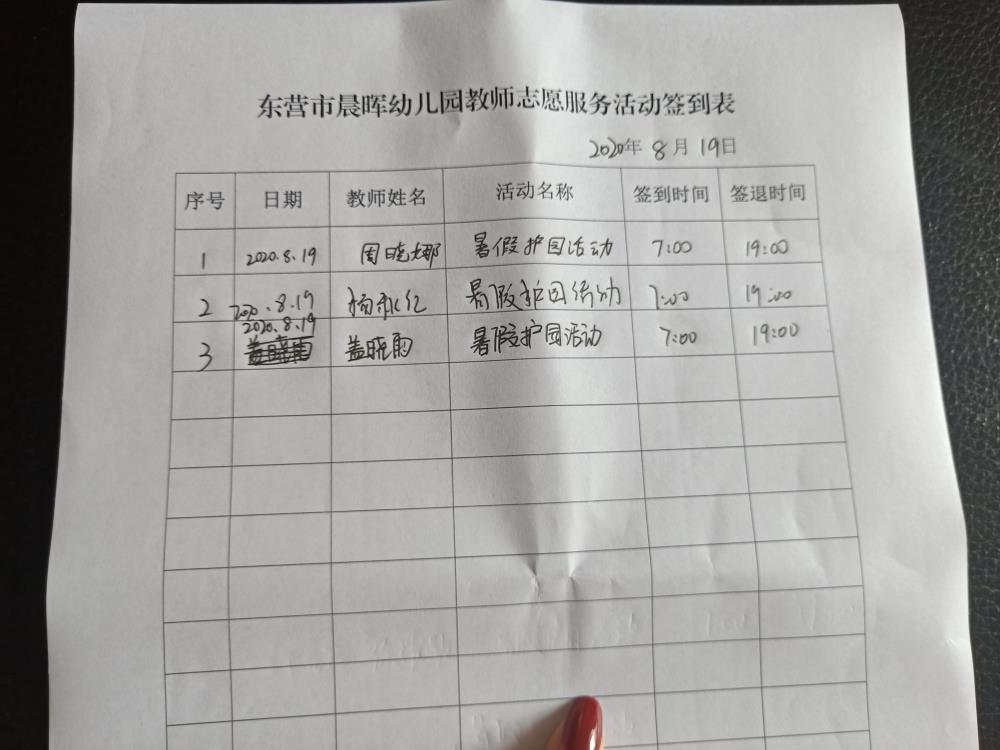 东营市晨晖幼儿园教师志愿服务活动签到表
2020年 8 月 19日
序号 日期 教师姓名 活动名称 签到时间 签退时间
1 2020.8.19 周晓娜 暑假护园活动 7:00 19:00
2 2020.8.19 杨永红 暑假护园活动 7:00 19:00
3 2020.8.19 盖晓雨 盖晓雨 暑假护园活动 7:00 19:00